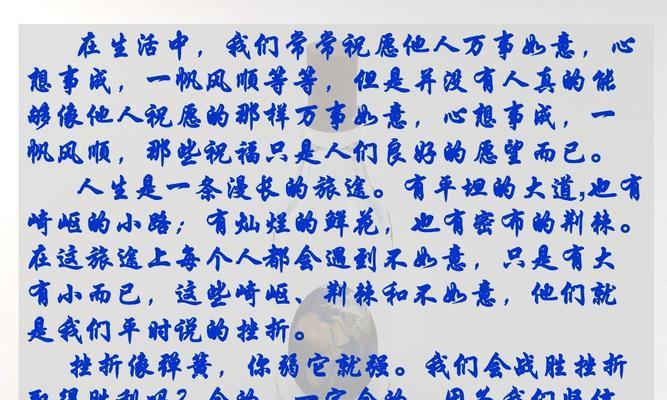 在生活中，我们常常祝愿他人万事如意，心
想事成，一帆风顺等等，但是并没有人真的能
够像他人祝愿的那样万事如意，心想事成，一
帆风顺，那些祝福只是人们良好的愿望而已。
人生是一条漫长的旅途。有平坦的大道,也有
崎岖的小路；有灿烂的鲜花，也有密布的荆棘。
在这旅途上每个人都会遇到不如意，只是有大
有小而已，这些崎岖、荆棘和不如意，他们就
是我们平时说的挫折。
挫折像弹簧，你弱它就强。我们会战胜挫折
取得胜利吗？会的，一定会的，因为我们坚信